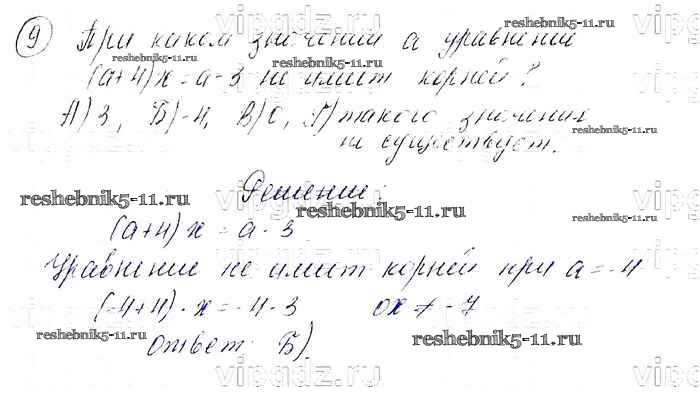 9 При каком значении а уравнение
(а+4)х = а - 3 не имеет корней?
А) 3, Б) -4, В) 0, Г) такого значения
не существует.
Решение:
(а+4)х = а - 3
Уравнение не имеет корней при а = -4
(-4+4)·х = -4-3 0х ≠ -7
Ответ: Б).
reshebnik5-11.ru
reshebnik5-11.ru
reshebnik5-11.ru
reshebnik5-11.ru
reshebnik5-11.ru
reshebnik5-11.ru
reshebnik5-11.ru
reshebnik5-11.ru
vipgdz.ru
vipgdz.ru
vipgdz.ru
vipgdz.ru
vipgdz.ru